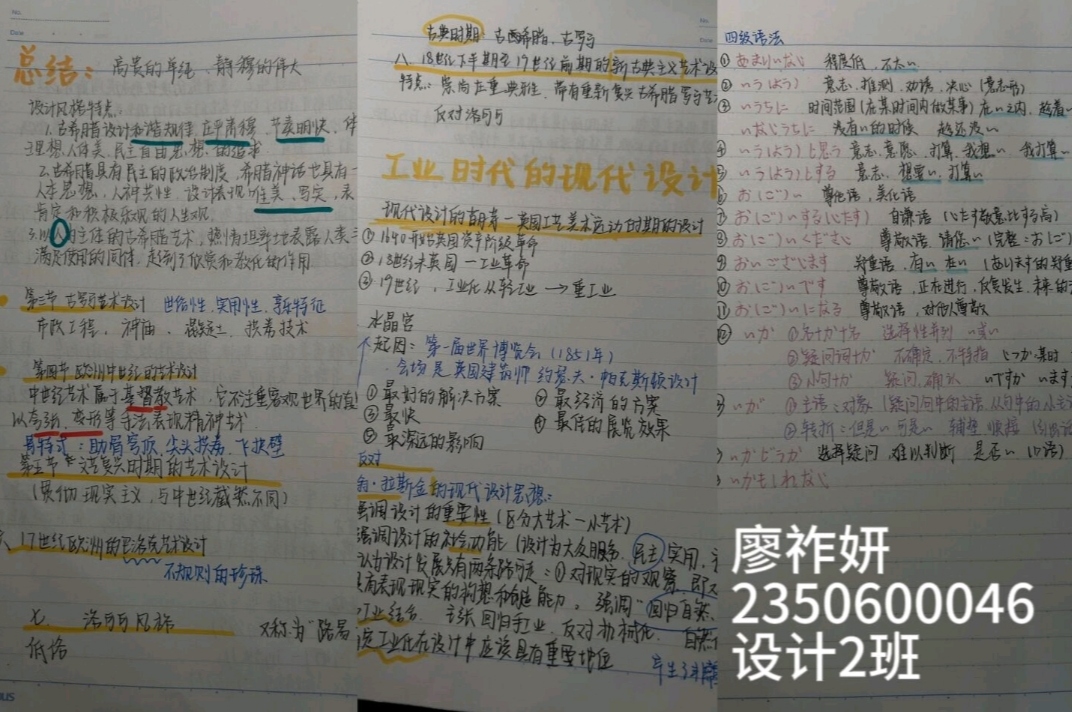 总结：高贵的单纯、静穆的伟大
设计风格特点：
1.古希腊设计和谐规律、庄严肃穆、节奏明快、体
理想人体美、民主自由思想的追求
2.古希腊具有民主的政治制度、希腊神话也具有一
人本思想，人神共性 设计表现为唯美、写实、表
肯定和积极乐观的人生观
3.以人为主体的古希腊艺术，
满足使用的同时，起到了欣赏和教化的作用
第三节 古罗马艺术设计 世俗性、实用性、享乐特征
市政工程、神庙、混凝土、拱券技术
第四节 欧洲中世纪的艺术设计
中世纪艺术属于基督教艺术，它不注重客观世界的真
以夸张、变形等手法表现精神世
哥特式：肋骨穹顶、尖头拱券、飞扶壁
第五节 文艺复兴时期的艺术设计
(现实主义，与中世纪截然不同)
六、17世纪欧洲的巴洛克艺术设计
不规则的珍珠
七、洛可可风格 又称为“路易
古典时期 古希腊、古罗马
八、18世纪下半期至19世纪前期的新古典主义艺术设
特点：崇尚庄重典雅，带有重新复兴古希腊罗马艺
反对洛可可
工业时代的现代设计
现代设计的萌芽—英国工艺美术运动时期的设计
①1640开始英国资产阶级革命
②18世纪末英国—工业革命
③19世纪，工业化从轻工业→重工业
水晶宫
起因：第一届世界博览会(1851年)
会场是英国建筑师 约瑟夫·帕克斯顿设计
①最好的解决方案 ②最经济的方案
③最快 ④最佳的展览效果
⑤最深远的影响
反对
约·拉斯金的现代设计思想：
强调设计的重要性(区分大艺术—小艺术)
强调设计的社会功能(设计为大众服务、民主、实用、
认为设计发展只有两条路可走：①对现实的观察，即
具有表现现实的构想和创造能力。强调“回归自然
工业结合 主张回归手工业，反对机械化
工业化在设计中应该具有重要地位
四级语法
①あまり〜ない 程度低，不太〜
②〜う(よう) 意志、推测、劝诱、决心(意志形)
③〜うちに 时间范围(在某时间内做某事) 在〜之内，趁着〜
〜ないうちに 没有〜的时候 趁还没〜
④〜う(よう)と思う 意志、意愿、打算，我想〜 我打算〜
⑤〜う(よう)とする 意志、想要〜、打算〜
⑥お(ご)〜 尊他语，美化语
⑦お(ご)〜する(いたす) 自谦语 (いたす敬意比する高)
⑧お(ご)〜ください 尊敬语，请您〜(完整：お(ご)
⑨お〜ございます 郑重语，有〜 在〜 (ありますの郑重
⑩お(ご)〜です 尊敬语，正在进行，
⑪お(ご)〜になる 尊敬语，对他人尊敬
⑫〜か ①名+か+名 选择性并列 〜或〜
②疑问词+か 不确定，不特指 いつか某时
③小句+か 疑问，确认 〜ですか 〜ます
〜が ①主语；对象
②转折：但是〜 可是〜
〜かどうか 选择疑问，难以判断 是否〜(口语)
〜かもしれない
廖祚妍
2350600046
设计2班